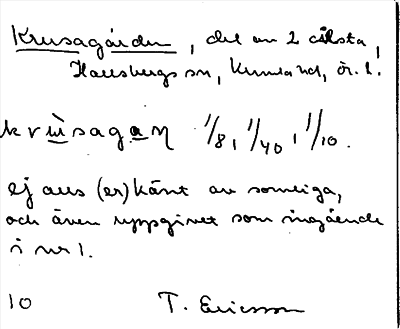 Krusagården, del av 2 cilsta,
Hallsbergs sn, Kumla hd, ör. l.
krùsagaɳ 1/8, 1/40, 1/10.
ej ans (er)känt av somliga,
och även uppgivet som ingående
i nr 1.
10 T. Ericsson